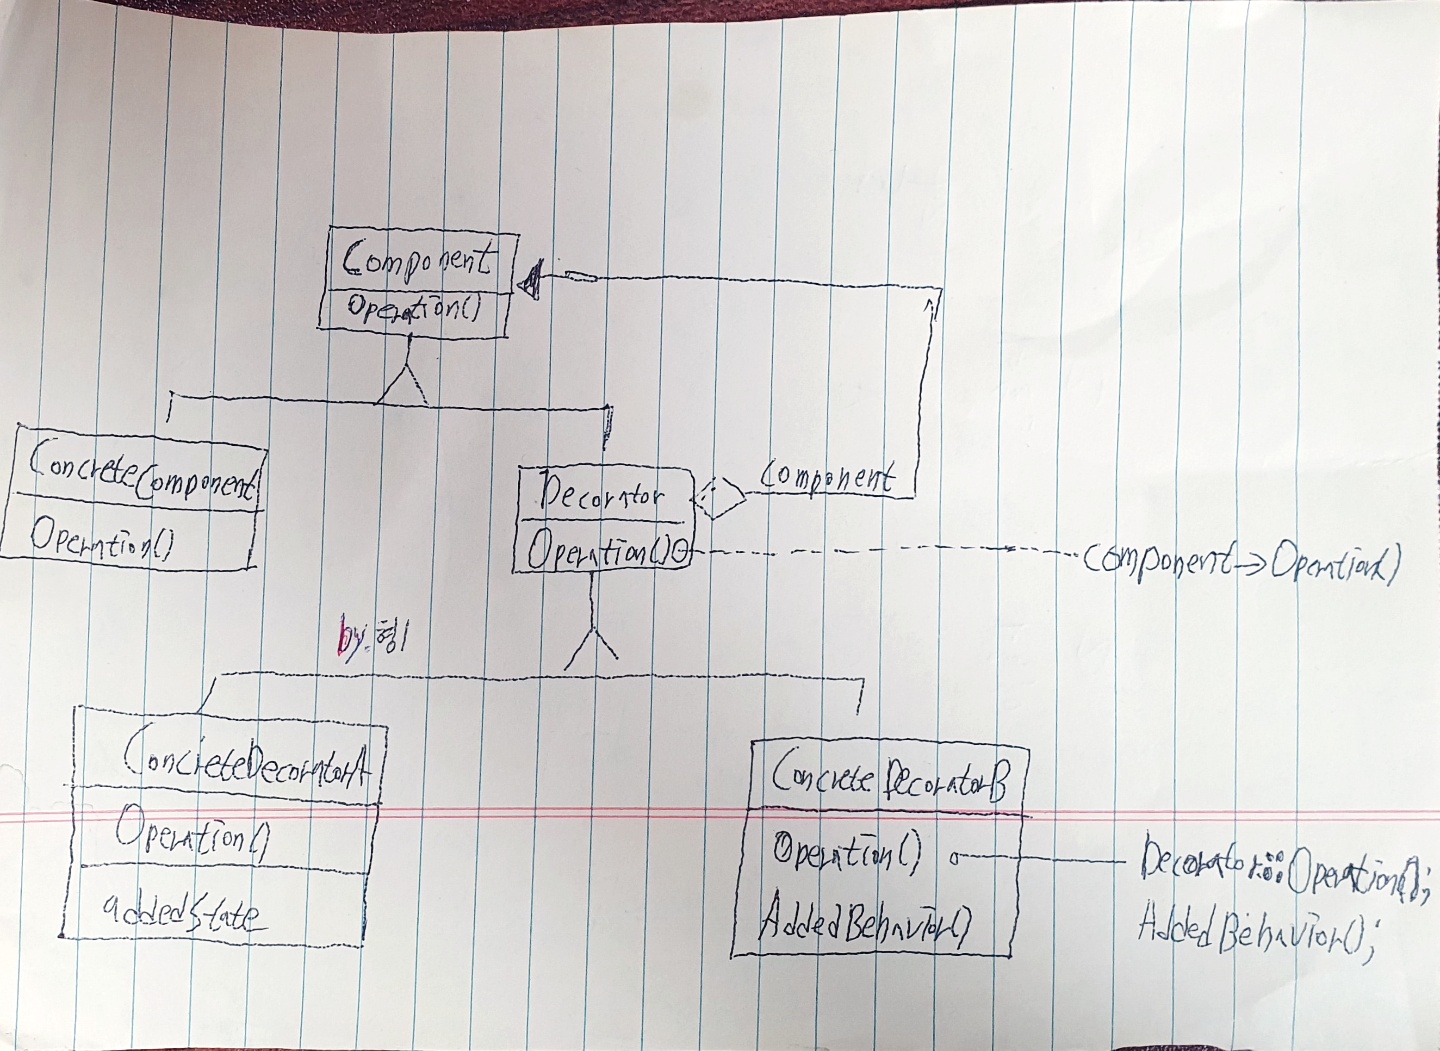 Component
Operation()
ConcreteComponent
Operation()
Decorator
Operation()
Component
component→Operation()
by.형
ConcreteDecoratorA
Operation()
addedState
ConcreteDecoratorB
Operation()
AddedBehavior()
Decorator::Operation();
AddedBehavior();